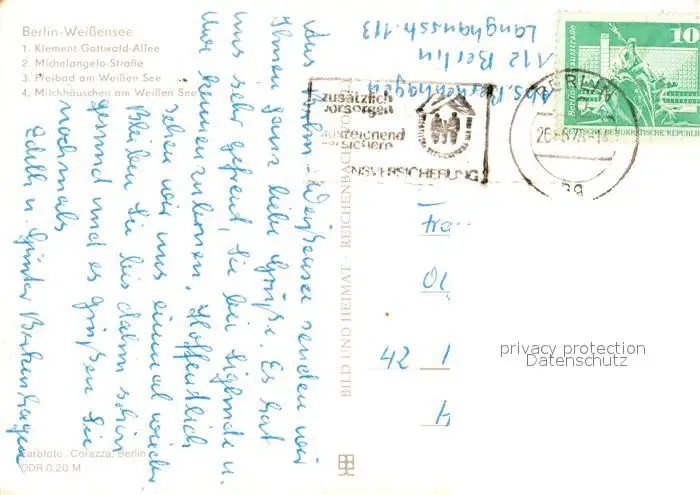 Berlin-Weißensee
1. Klement-Gottwald-Allee
2. Michelangelo-Straße
3. Freibad am Weißen See
4. Milchhäuschen am Weißen See
Aus Berlin-Weißensee senden wir
Ihnen ganz liebe Grüße. Es hat
uns sehr gefreut, Sie bei Siglinde u.
kennenzulernen. Hoffentlich
sehen wir uns einmal wieder
Bleiben Sie bis dahin schön
gesund und es grüßen Sie
nochmals
Edith u. Günter Berkenhagen
Farbfoto: Corazza, Berlin
DDR 0,20 M
BILD UND HEIMAT · REICHENBACH
Abs. Berkenhagen
112 Berlin
Langhansstr. 113
zusätzlich
vorsorgen
ausreichend
versichern
NSVERSICHERUNG
BERLIN
10
DEUTSCHE DEMOKRATISCHE REPUBLIK
10
42
privacy protection
Datenschutz